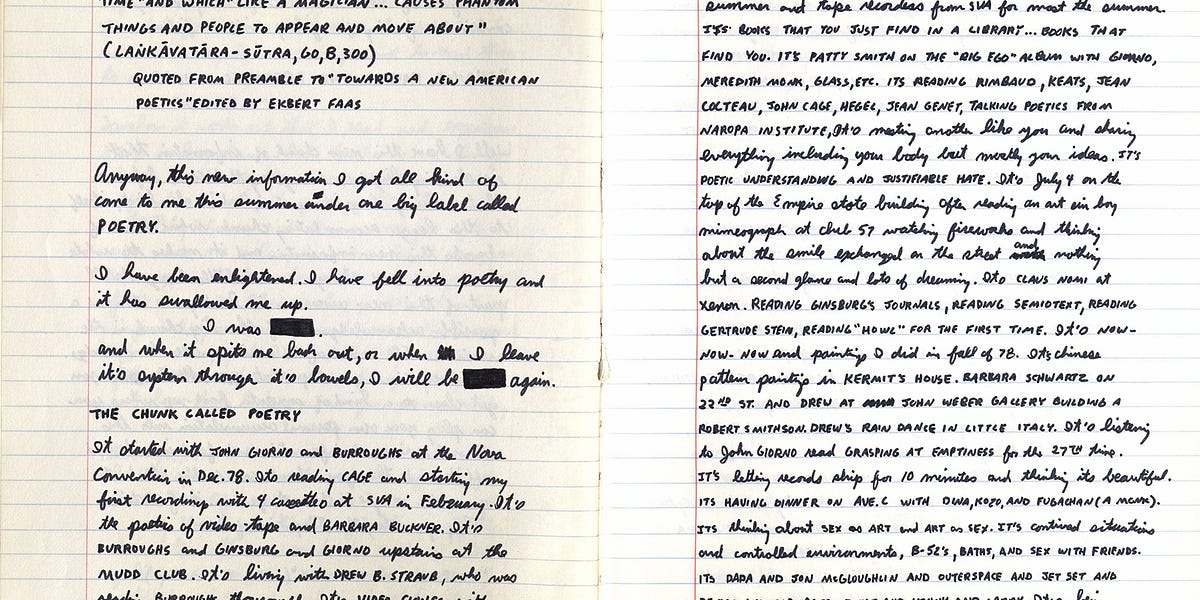 TIME" AND WHICH "LIKE A MAGICIAN... CAUSES PHANTOM
THINGS AND PEOPLE TO APPEAR AND MOVE ABOUT"
(LAṄKĀVATĀRA-SŪTRA, 60, B, 300)
QUOTED FROM PREAMBLE TO "TOWARDS A NEW AMERICAN
POETICS" EDITED BY EKBERT FAAS
Anyway, this new information I got all kind of
come to me this summer under one big label called
POETRY.
I have been enlightened. I have fell into poetry and
it has swallowed me up.
I was
and when it spits me back out, or when I leave
it's system through it's bowels, I will be again.
THE CHUNK CALLED POETRY
It started with JOHN GIORNO and BURROUGHS at the Nova
Convention in Dec. 78. Its reading CAGE and starting my
first recordings with 4 cassettes at SVA in February. It's
the poetics of video-tape and BARBARA BUCKNER. It's
BURROUGHS and GINSBURG and GIORNO upstairs at the
MUDD CLUB. It's living with DREW B. STRAUB, who was
reading BURROUGHS
summer and tape recorders from SVA for most the summer.
IT'S BOOKS THAT YOU JUST FIND IN A LIBRARY... BOOKS THAT
FIND YOU. IT'S PATTY SMITH ON THE "BIG EGO" ALBUM WITH GIORNO,
MEREDITH MONK, GLASS, ETC. ITS READING RIMBAUD, KEATS, JEAN
COLTEAU, JOHN CAGE, HEGEL, JEAN GENET, TALKING POETICS FROM
NAROPA INSTITUTE, It's meeting another like you and sharing
everything including your body but mostly your ideas. IT'S
POETIC UNDERSTANDING AND JUSTIFIABLE HATE. It's July 4 on the
top of the Empire state building after reading an art ein boy
mimeograph at club 57 watching fireworks and thinking
about the smile exchanged on the street and nothing
but a second glance and lots of dreaming. Its CLAUS NOMI at
xenon. READING GINSBURG'S JOURNALS, READING SEMIOTEXT, READING
GERTRUDE STEIN, READING "HOWL" FOR THE FIRST TIME. It's NOW-
NOW-NOW and paintings I did in fall of 78. Its chinese
pattern paintings in KERMIT'S HOUSE. BARBARA SCHWARTZ ON
22ND ST. AND DREW AT JOHN WEBER GALLERY BUILDING A
ROBERT SMITHSON. DREW'S RAIN DANCE IN LITTLE ITALY. It's listening
to John GIORNO read GRASPING AT EMPTINESS for the 27TH time.
IT'S letting records skip for 10 minutes and thinking its beautiful.
ITS HAVING DINNER ON AVE. C WITH DINA, KOZO, AND FUGACHAN (A MONK).
ITS thinking about SEX as ART and ART as SEX. IT'S contived situations
and controlled environments, B-52's, BATHS, AND SEX WITH FRIENDS.
ITS DADA AND JON McGLOUGHLIN AND OUTERSPACE AND JET SET AND